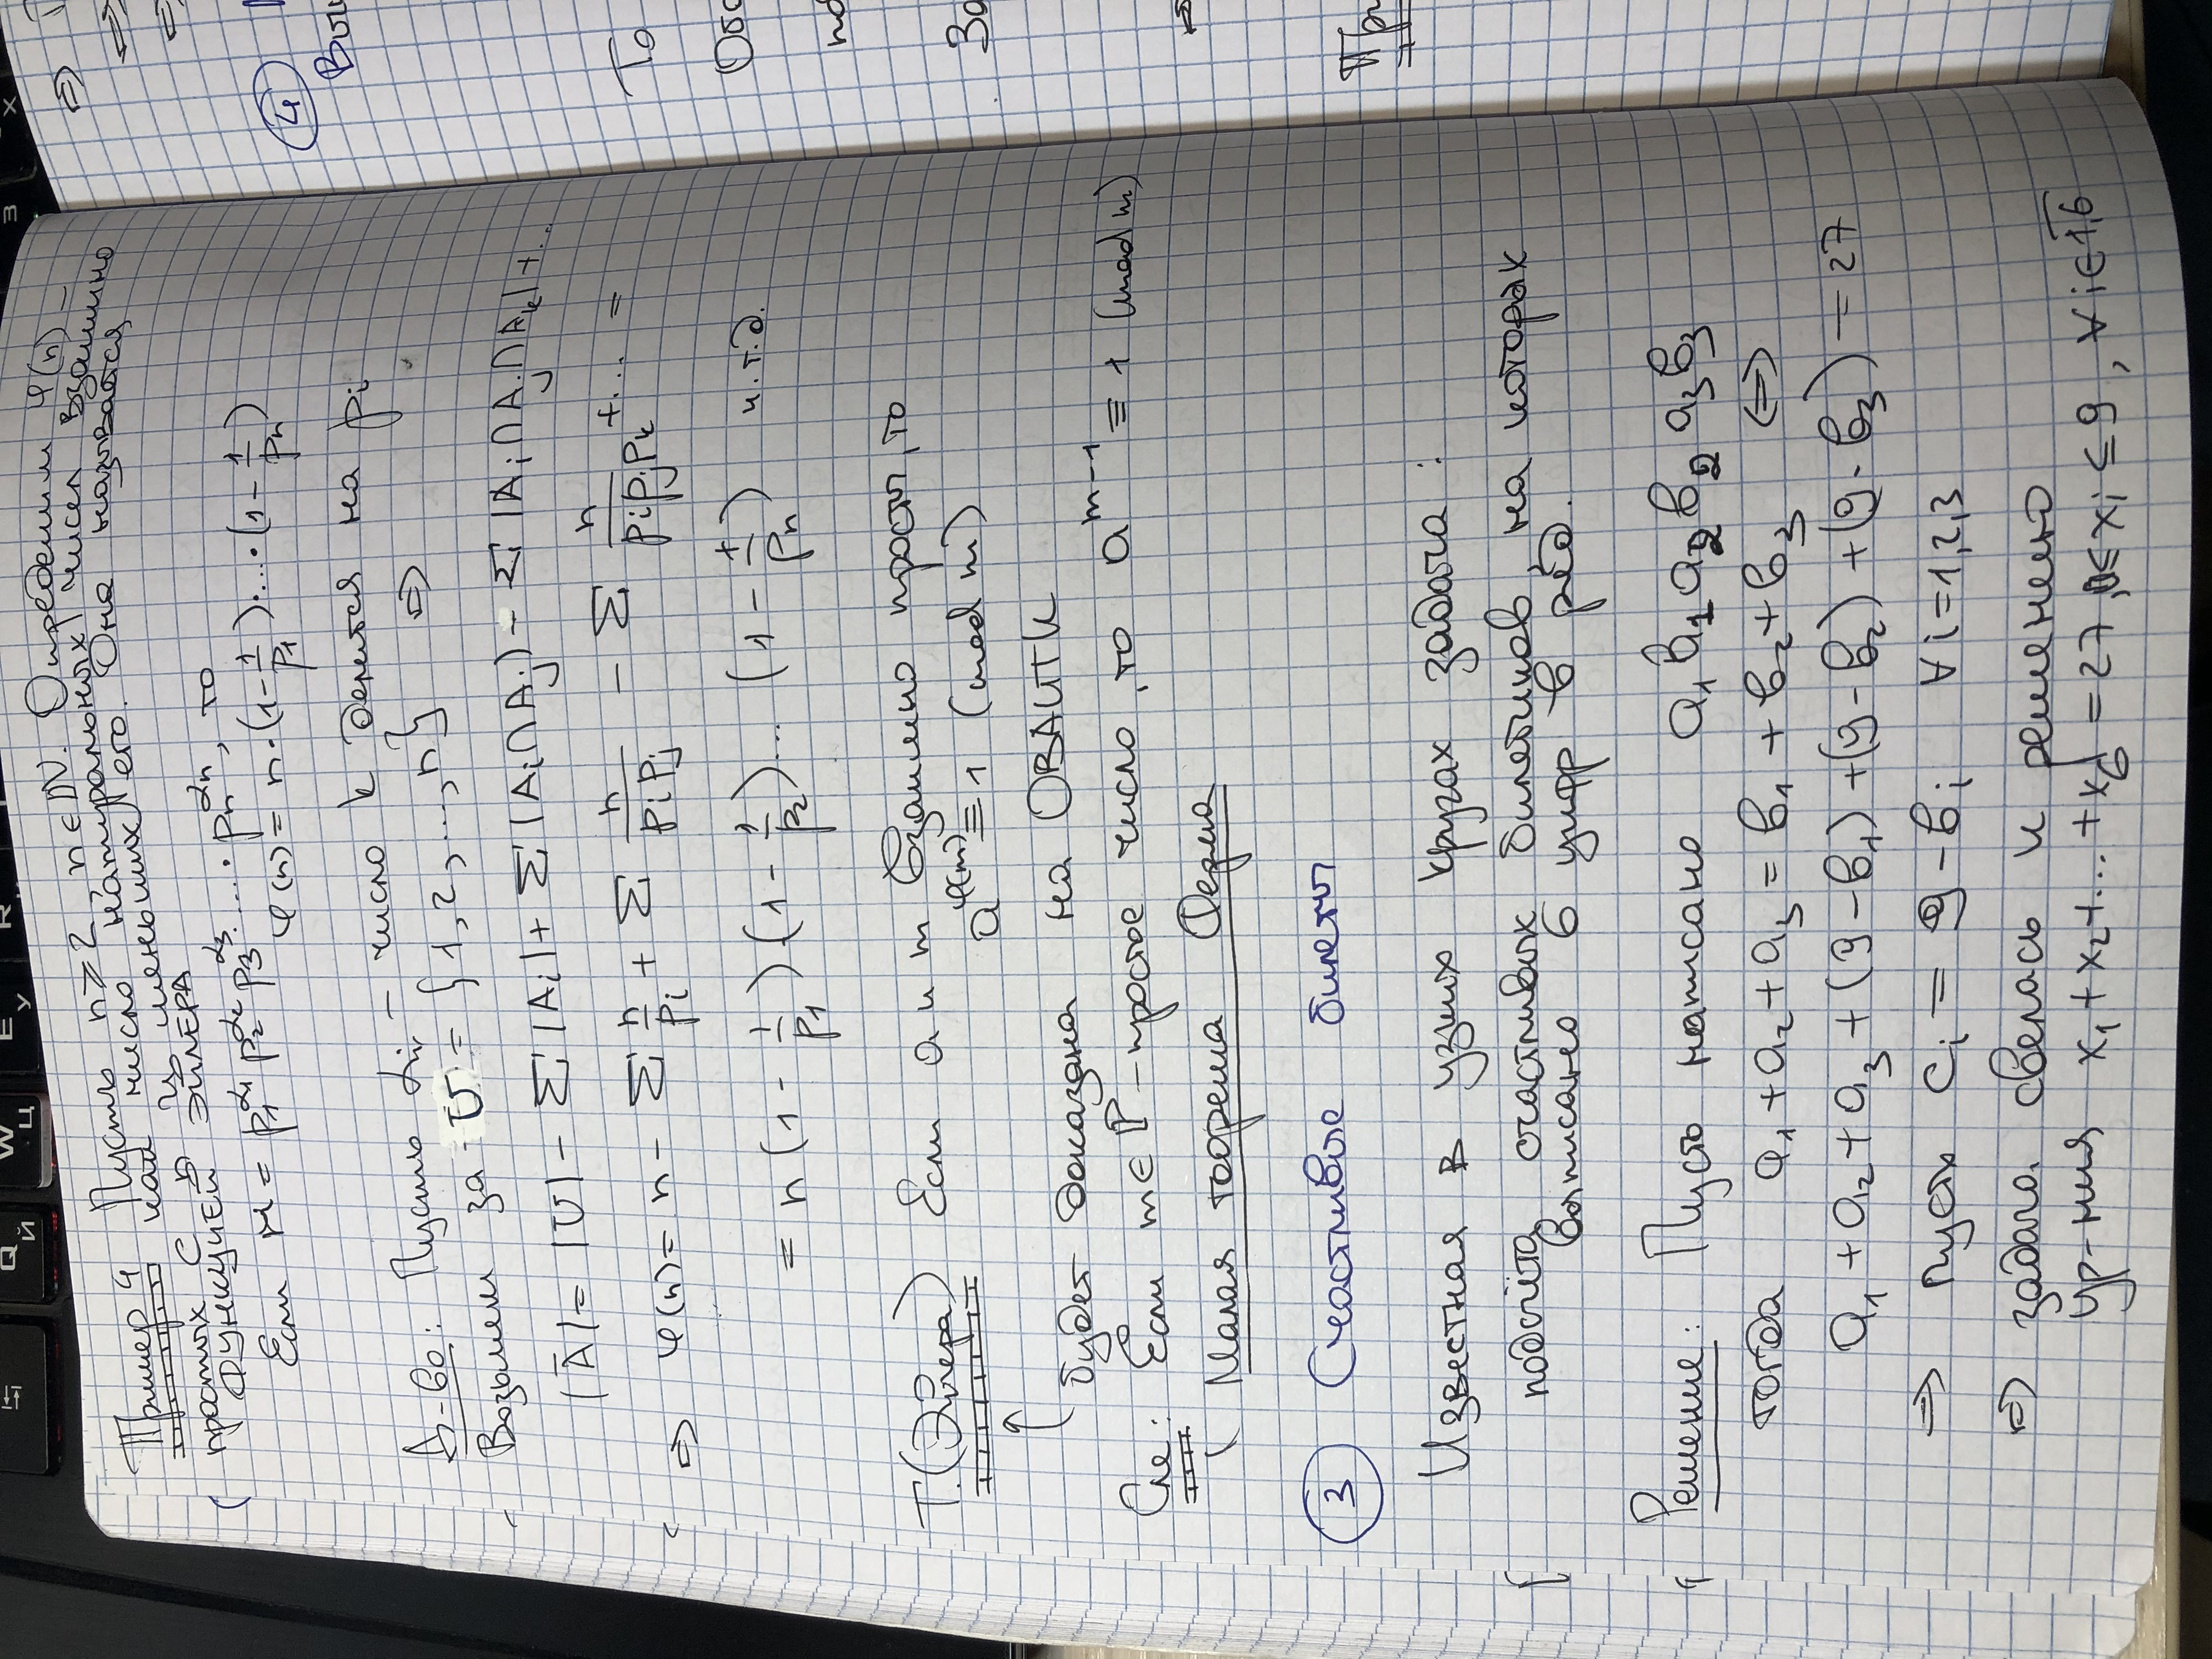 Пример 4 Пусть n ⩾ 2, n ∈ ℕ. Определим φ(n) –
как число натуральных чисел взаимно
простых с n и меньших его. Она называется
ФУНКЦИЕЙ ЭЙЛЕРА
Если n = p₁^α₁ p₂^α₂ p₃^α₃ · ... · pₙ^αₙ, то
φ(n) = n · (1 - 1/p₁) · ... · (1 - 1/pₙ)
Д-во: Пусть αᵢ – число k делится на pᵢ
Возьмем за U = {1, 2, ..., n} ⇒
|Ā| = |U| - Σ|Aᵢ| + Σ|Aᵢ∩Aⱼ| - Σ|Aᵢ∩Aⱼ∩Aₖ| + ...
⇒ φ(n) = n - Σ n/pᵢ + Σ n/(pᵢpⱼ) - Σ n/(pᵢpⱼpₖ) + ... =
= n (1 - 1/p₁)(1 - 1/p₂)... (1 - 1/pₙ) ч.т.д.
Т. (Эйлера) Если a и m взаимно просты, то
a^φ(m) ≡ 1 (mod m)
будет доказана на ОВАИТК
Сле: Если m ∈ ℙ – простое число, то a^(m-1) ≡ 1 (mod m)
Малая теорема Ферма
3 Счастливые билеты
Известная в узких кругах задача:
подсчёта счастливых билетиков, на которых
написано 6 цифр в ряд.
Решение: Пусть написано a₁ b₁ a₂ b₂ a₃ b₃
тогда a₁ + a₂ + a₃ = b₁ + b₂ + b₃ ⇔
a₁ + a₂ + a₃ + (9 - b₁) + (9 - b₂) + (9 - b₃) = 27
⇒ пусть cᵢ = 9 - bᵢ ∀ i = 1, 2, 3
⇒ задача свелась к решению
ур-ния x₁ + x₂ + ... + x₆ = 27, 0 ≤ xᵢ ≤ 9, ∀ i ∈ 1,6
4
То